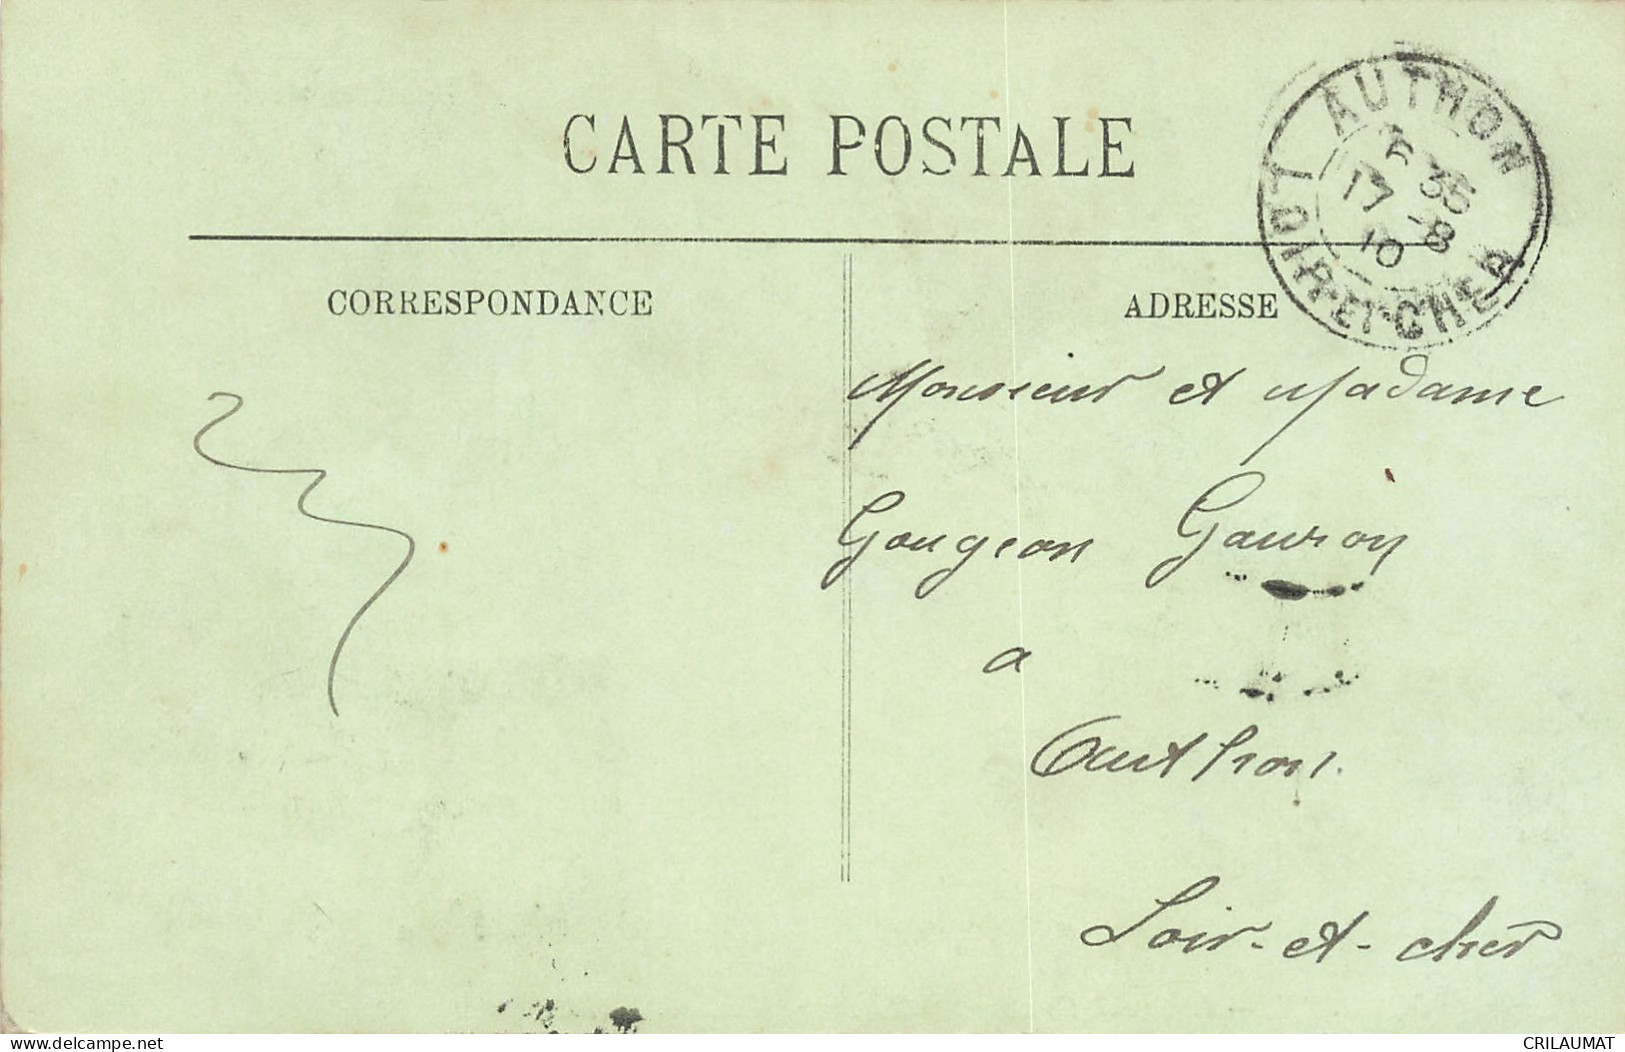 CARTE POSTALE
AUTHON
6 35
17 -8
10
LOIR-ET-CHER
CORRESPONDANCE
ADRESSE
Monsieur et Madame
Gougeon Gauron
a
Authon.
Loir-et-cher
www.delcampe.net
CRILAUMAT